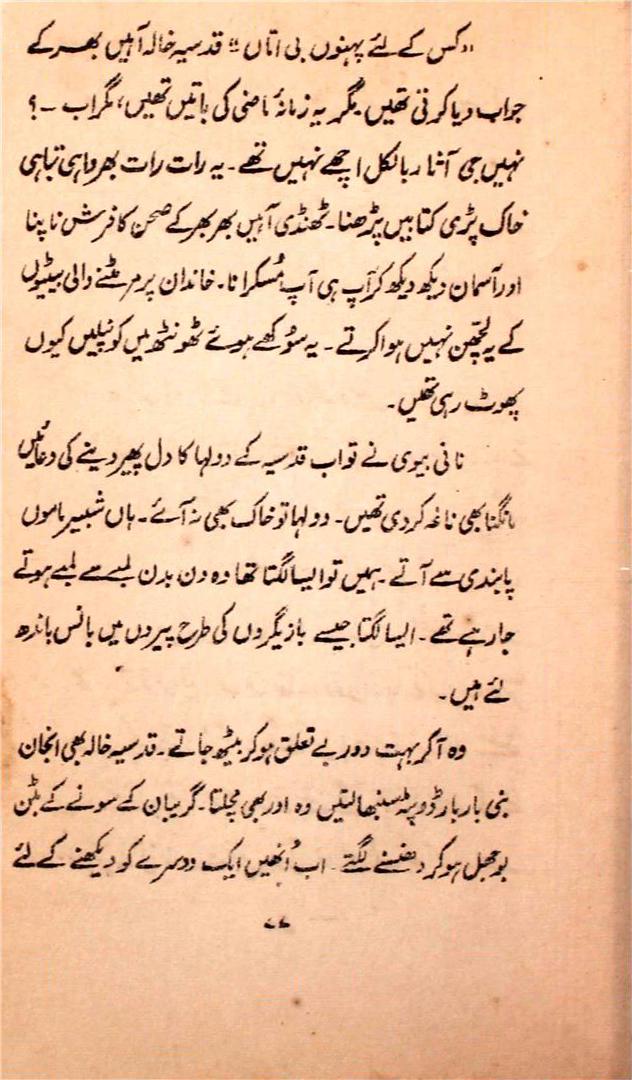 ”کس کے لئے پہنوں بی امّاں!!“ قدسیہ خالہ آہیں بھر کے
جواب دیا کرتی تھیں۔ مگر یہ زمانۂ ماضی کی باتیں تھیں، مگر اب ۔۔؟
نہیں جی آثار بالکل اچھے نہیں تھے۔ یہ رات رات بھر واہی تباہی
خاک پڑی کتابیں پڑھنا۔ ٹھنڈی آہیں بھر بھر کے صحن کا فرش ناپنا
اور آسمان دیکھ دیکھ کر آپ ہی آپ مُسکرانا۔ خاندان پر مر مٹنے والی بیٹیوں
کے یہ لچھن نہیں ہوا کرتے۔ یہ سُوکھے ہوئے ٹھونٹھ میں کونپلیں کیوں
پھوٹ رہی تھیں۔
نانی بیوی نے تو اب قدسیہ کے دولہا کا دل پھیر دینے کی دعائیں
مانگنا بھی ناغہ کر دی تھیں۔ دولہا تو خاک بھی نہ آئے۔ ہاں شبیر ماموں
پابندی سے آتے۔ ہمیں تو ایسا لگتا تھا وہ دن بدن لمبے سے لمبے ہوتے
جا رہے تھے۔ ایسا لگتا جیسے بازیگروں کی طرح پیروں میں بانس باندھ
لئے ہیں۔
وہ آکر بہت دور بے تعلق ہوکر بیٹھ جاتے۔ قدسیہ خالہ بھی انجان
بنی بار بار ڈوپٹہ سنبھالتیں وہ اور بھی مچلتا۔ گریبان کے سونے کے بٹن
بوجھل ہوکر دھنسنے لگتے۔ اب اُنھیں ایک دوسرے کو دیکھنے کے لئے
۷۷